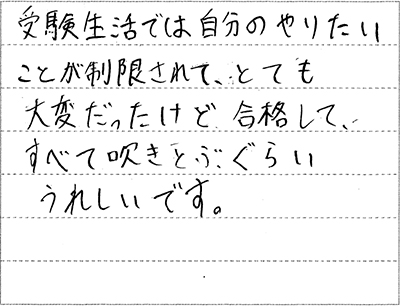 受験生活では自分のやりたい
ことが制限されて、とても
大変だったけど、合格して、
すべて吹きとぶぐらい
うれしいです。